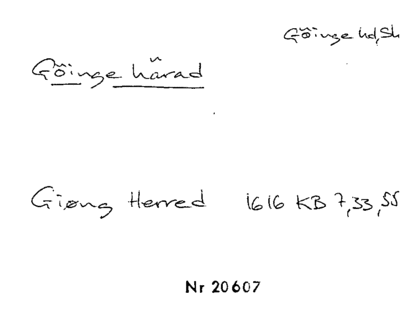 Göinge hd, Sk
Göinge härad
Giøng Herred 1616 KB 7,33,55
Nr 20607